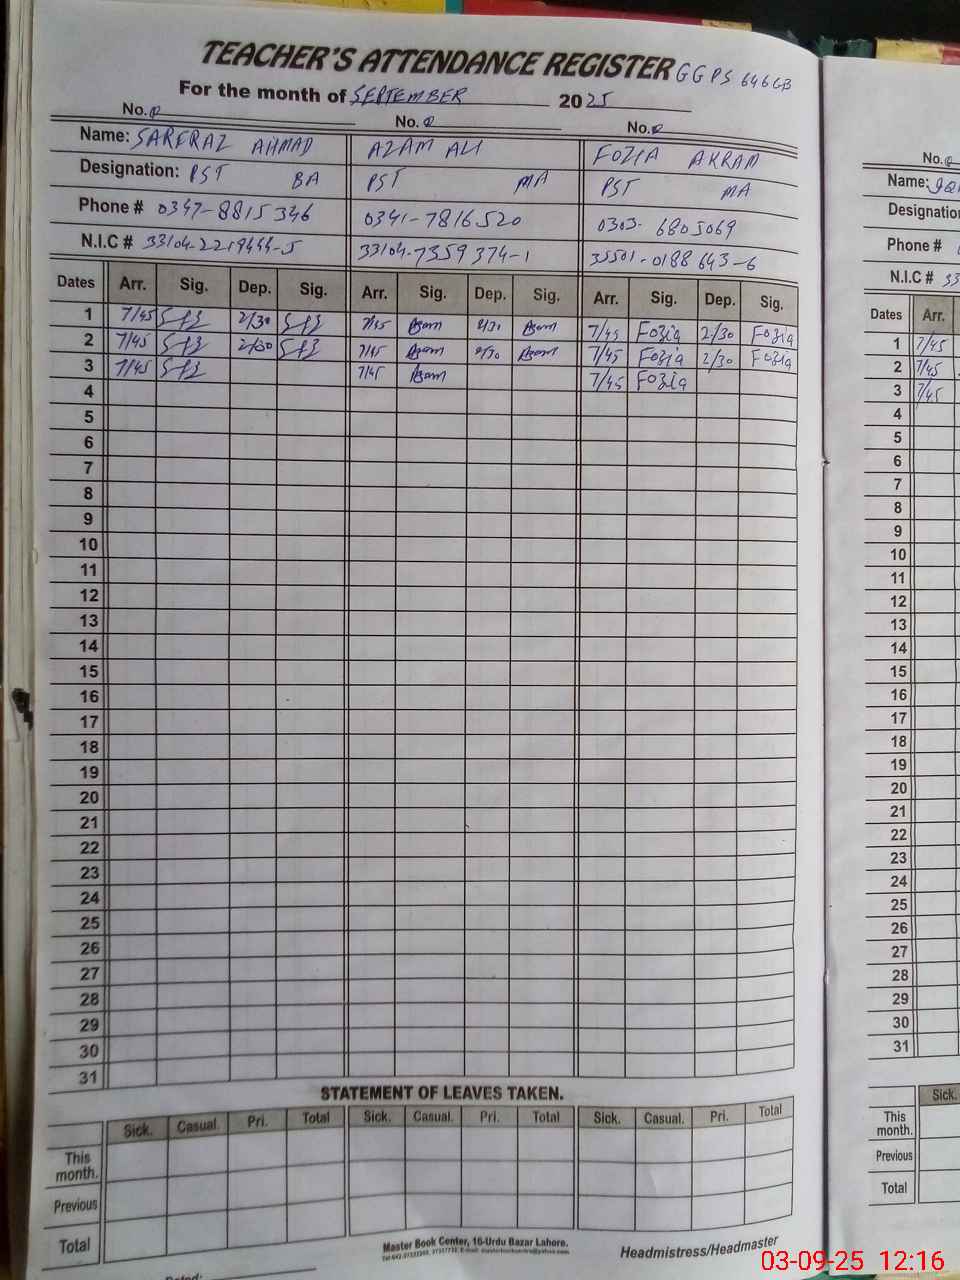 TEACHER'S ATTENDANCE REGISTER GGPS 646GB
For the month of SEPTEMBER 2025
No. No. No.
Name: SARFRAZ AHMAD AZAM ALI FOZIA AKRAM
Designation: PST BA PST MA PST MA
Phone # 0347-8815346 0341-7816520 0303-6805069
N.I.C # 33104-2219444-5 33104-7359374-1 35501-0188643-6
Dates Arr. Sig. Dep. Sig. Arr. Sig. Dep. Sig. Arr. Sig. Dep. Sig.
1 7/45 2/30 7/45 Azam 2/30 Azam 7/45 Fozia 2/30 Fozia
2 7/45 2/30 7/45 Azam 2/30 Azam 7/45 Fozia 2/30 Fozia
3 7/45 7/45 Azam 7/45 Fozia
4
5
6
7
8
9
10
11
12
13
14
15
16
17
18
19
20
21
22
23
24
25
26
27
28
29
30
31
STATEMENT OF LEAVES TAKEN.
Sick. Casual. Pri. Total Sick. Casual. Pri. Total Sick. Casual. Pri. Total
This month.
Previous
Total
Master Book Center, 16-Urdu Bazar Lahore.
Headmistress/Headmaster
Dated:
No.
Name:
Designation
Phone #
N.I.C # 33
Dates Arr.
1 7/45
2 7/45
3 7/45
4
5
6
7
8
9
10
11
12
13
14
15
16
17
18
19
20
21
22
23
24
25
26
27
28
29
30
31
Sick.
This month.
Previous
Total
03-09-25 12:16